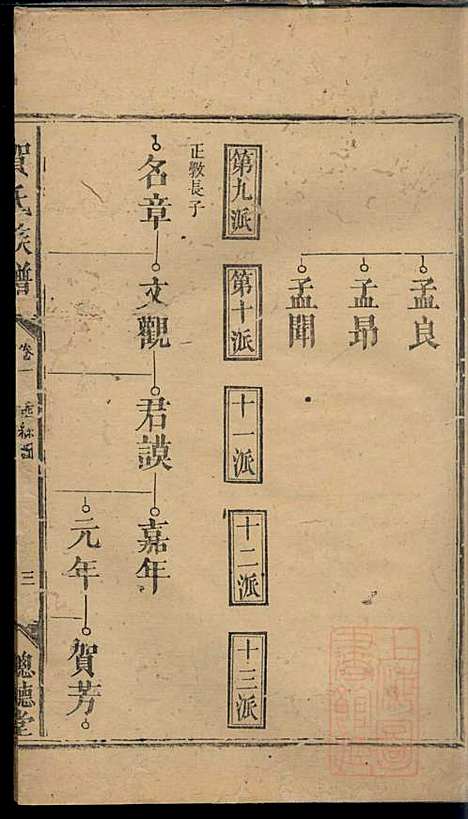 孟良
孟昻
孟聞
第九派
第十派
十一派
十二派
十三派
正教長子
名章
文觀
君謨
嘉年
元年
賀芳
賀氏族譜
卷一
三
聰德堂